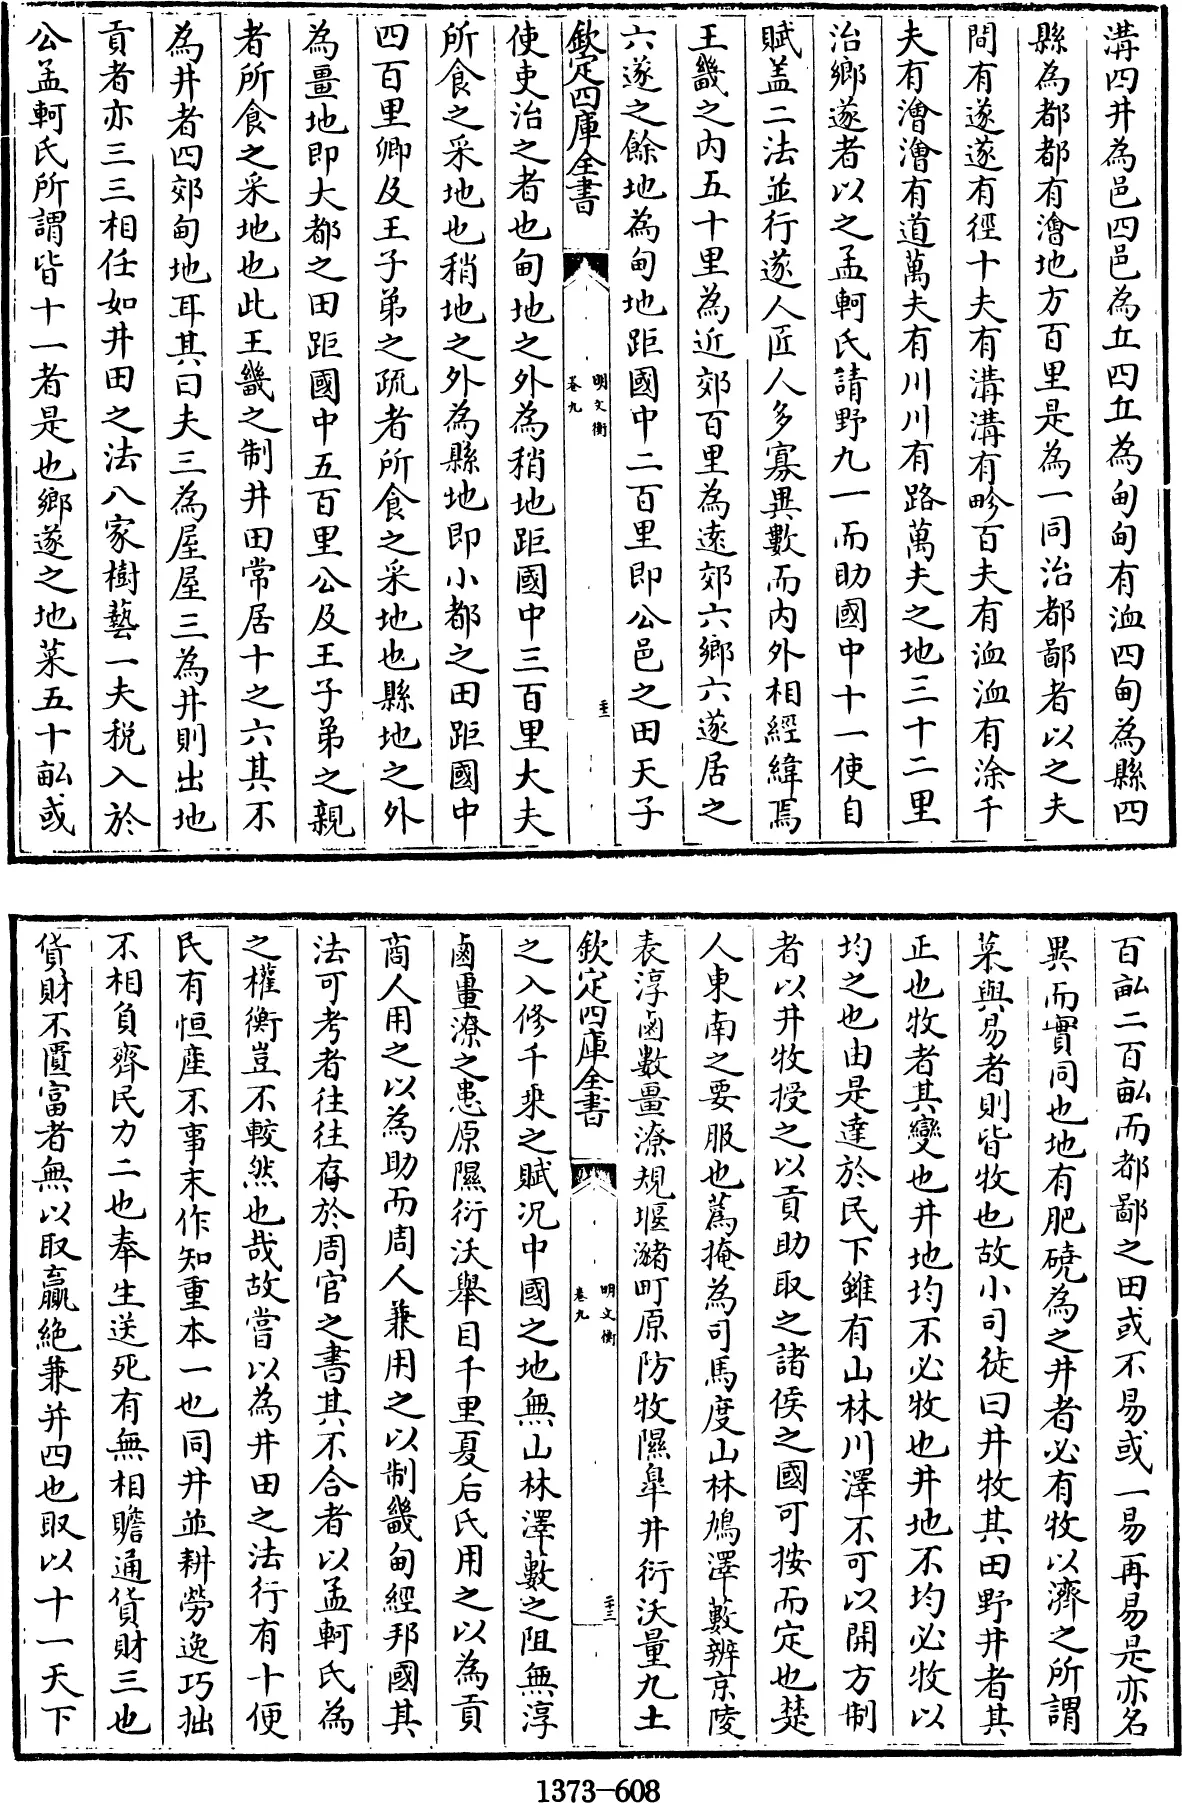 溝四井為邑四邑為丘四丘為甸甸有洫四甸為縣四
縣為都都有澮地方百里是為一同治都鄙者以之夫
間有遂遂有徑十夫有溝溝有畛百夫有洫洫有涂千
夫有澮澮有道萬夫有川川有路萬夫之地三十二里
治鄉遂者以之孟軻氏請野九一而助國中十一使自
賦蓋二法並行遂人匠人多寡異數而內外相經緯焉
王畿之内五十里為近郊百里為遠郊六鄉六遂居之
六遂之餘地為甸地距國中二百里即公邑之田天子
欽定四庫全書
明文衡
卷九
二十二
使吏治之者也甸地之外為稍地距國中三百里大夫
所食之采地也稍地之外為縣地即小都之田距國中
四百里卿及王子弟之疏者所食之采地也縣地之外
為畺地即大都之田距國中五百里公及王子弟之親
者所食之采地也此王畿之制井田常居十之六其不
為井者四郊甸地耳其曰夫三為屋屋三為井則出地
貢者亦三三相任如井田之法八家樹藝一夫稅入於
公孟軻氏所謂皆十一者是也鄉遂之地萊五十畝或
百畝二百畝而都鄙之田或不易或一易再易是亦名
異而實同也地有肥磽為之井者必有牧以濟之所謂
萊與易者則皆牧也故小司徒曰井牧其田野井者其
正也牧者其變也井地均不必牧也井地不均必牧以
均之也由是達於民下雖有山林川澤不可以開方制
者以井牧授之以貢助取之諸侯之國可按而定也楚
人東南之要服也蒍掩為司馬度山林鳩澤藪辨京陵
表淳鹵數畺潦規堰瀦町原防牧隰臯井衍沃量九土
欽定四庫全書
明文衡
卷九
二十三
之入修千乘之賦况中國之地無山林澤藪之阻無淳
鹵畺潦之患原隰衍沃舉目千里夏后氏用之以為貢
商人用之以為助而周人兼用之以制畿甸經邦國其
法可考者往往存於周官之書其不合者以孟軻氏為
之權衡豈不較然也哉故嘗以為井田之法行有十便
民有恒產不事末作知重本一也同井並耕勞逸巧拙
不相負齊民力二也奉生送死有無相贍通貨財三也
貨財不匱富者無以取贏絶兼并四也取以十一天下
1373-608